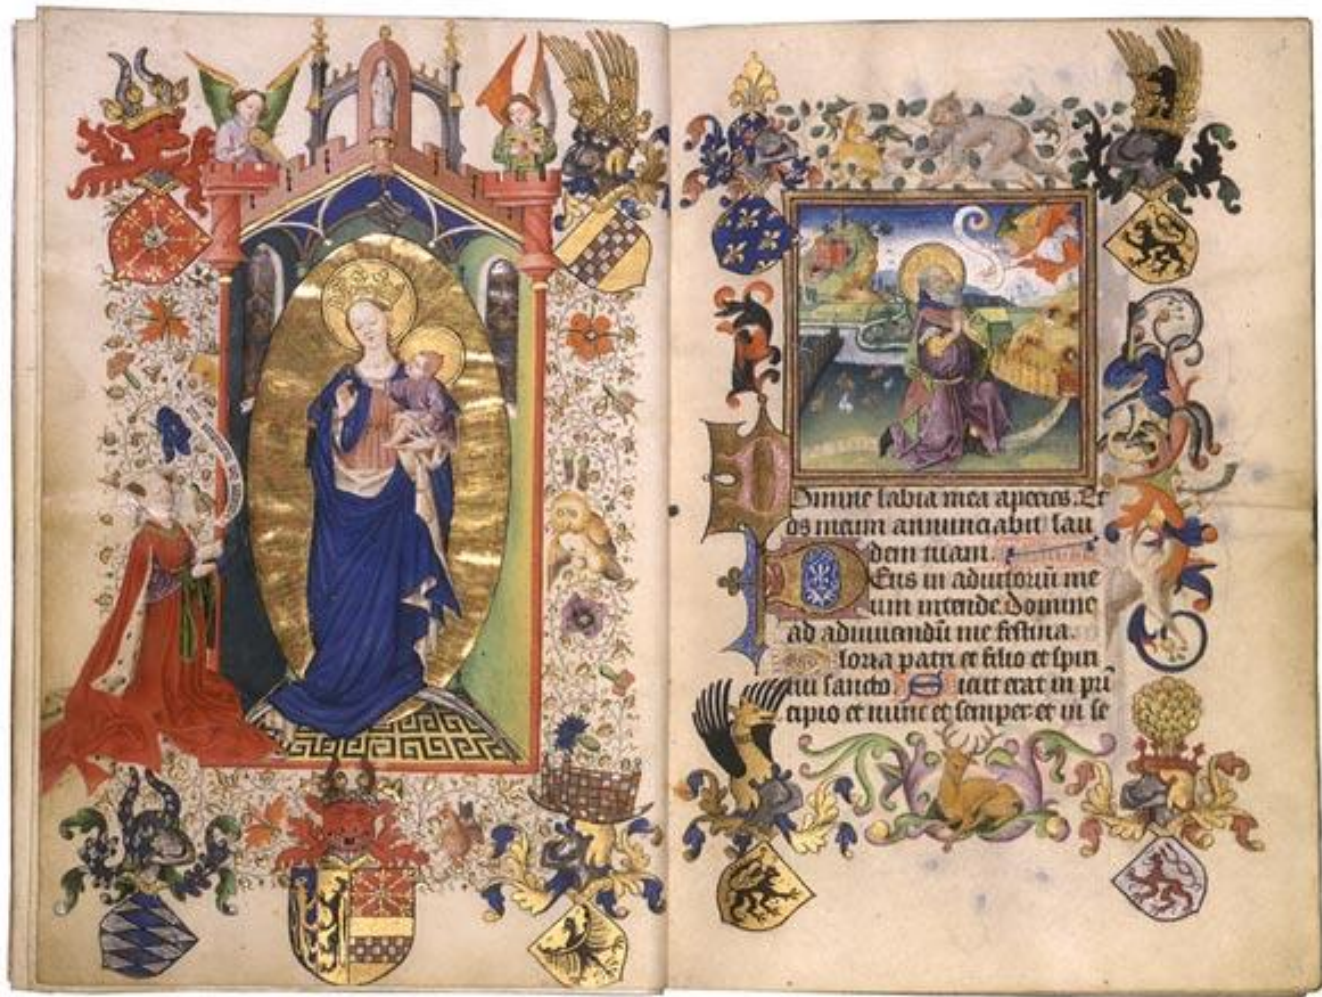 Domine labia mea aperies. Et
os meum annunciabit lau
dem tuam.
Deus in adiutoriū me
um intende. Domine
ad adiuuandū me festina.
Gloria patri et filio et spiri
tui sancto. Sicut erat in prī
cipio et nunc et semper et in se